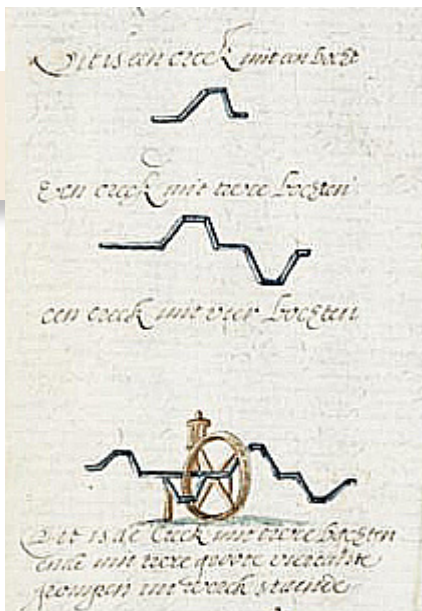 Dit is een creck mit een bocht
Een creck mit twee bochten
een creck mit vier bochten
Dit is de creck mit twee bochten
ende mit twee
pompen